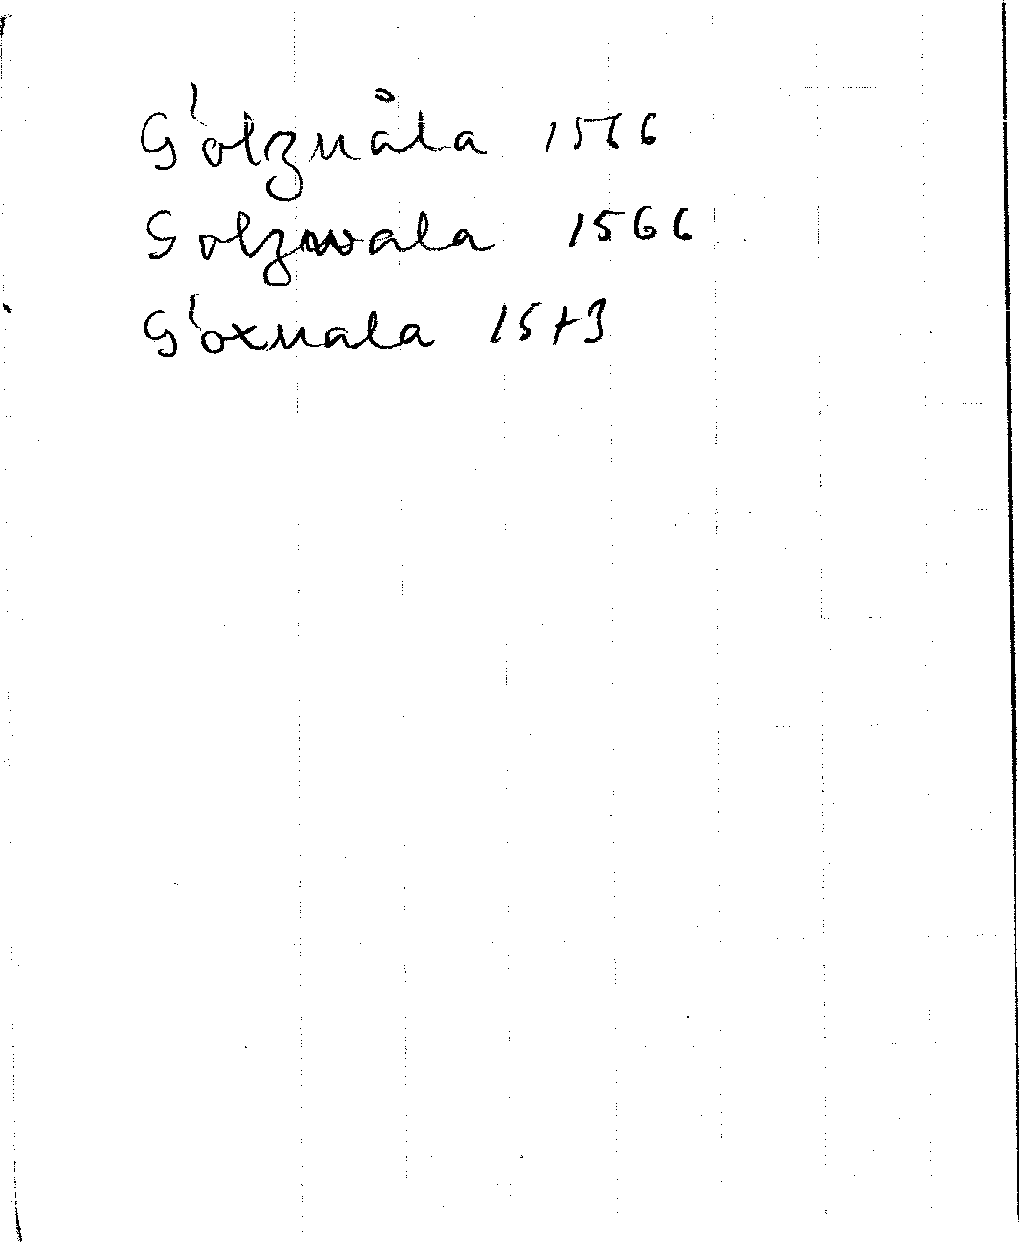 G'olznåla 1566
Golzwala 1566
G'oxnala 1573